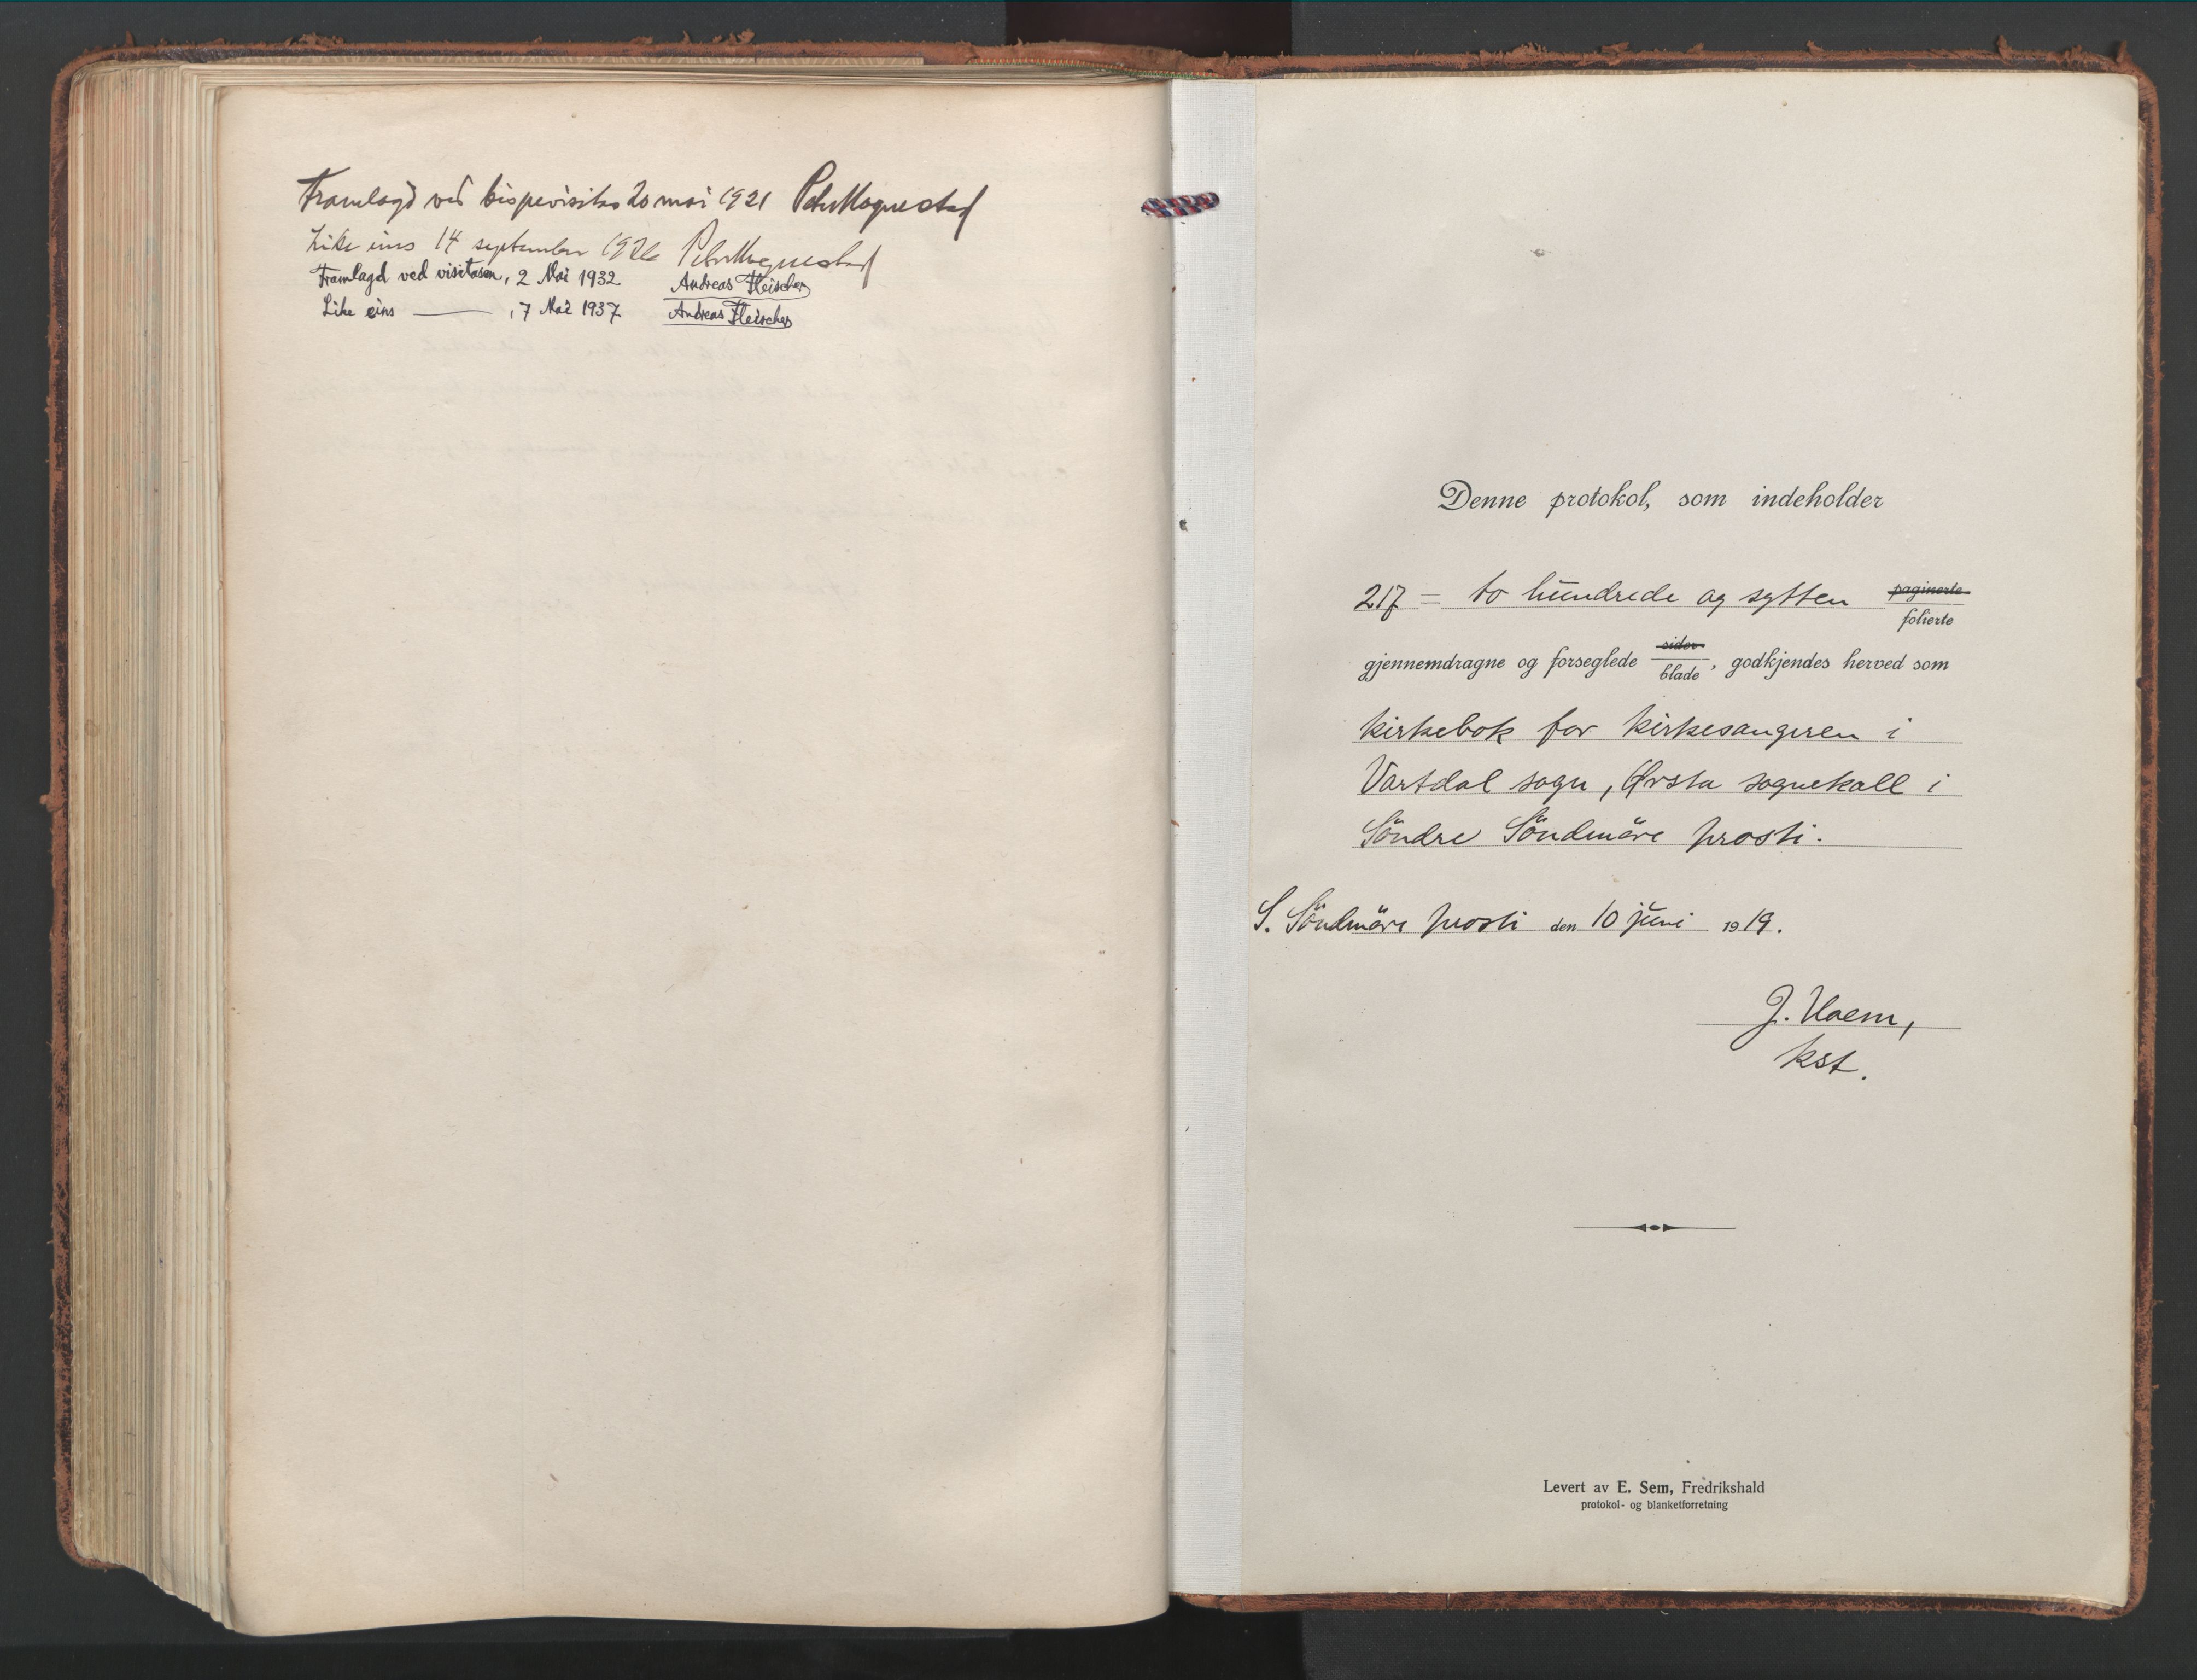 Framlagd ved bispevisitas 20 mai 1921 Peter Hognestad
Like eins 14 september 1926 Peter Hognestad
Framlagd ved visitasen, 2 Mai 1932 Andreas Fleischer
Like eins — , 7 Mai 1937 Andreas Fleischer
Denne protokol, som indeholder
217 = to hundrede og sytten paginerte
folierte
gjennemdragne og forseglede sider
blade, godkjendes herved som
kirkebok for kirkesangeren i
Vartdal sogn, Ørsta sognekall i
Söndre Söndmöre prosti.
S. Söndmöre prosti den 10 juni 1919.
J. Uaem,
kst.
Levert av E. Sem, Fredrikshald
protokol- og blanketforretning